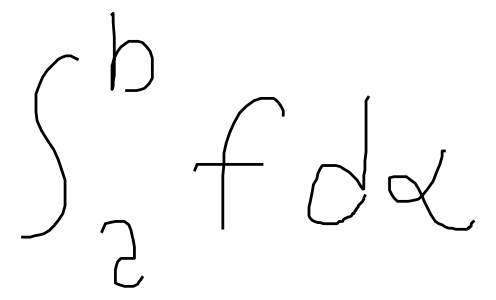 \int_{2}^{b} f d\alpha